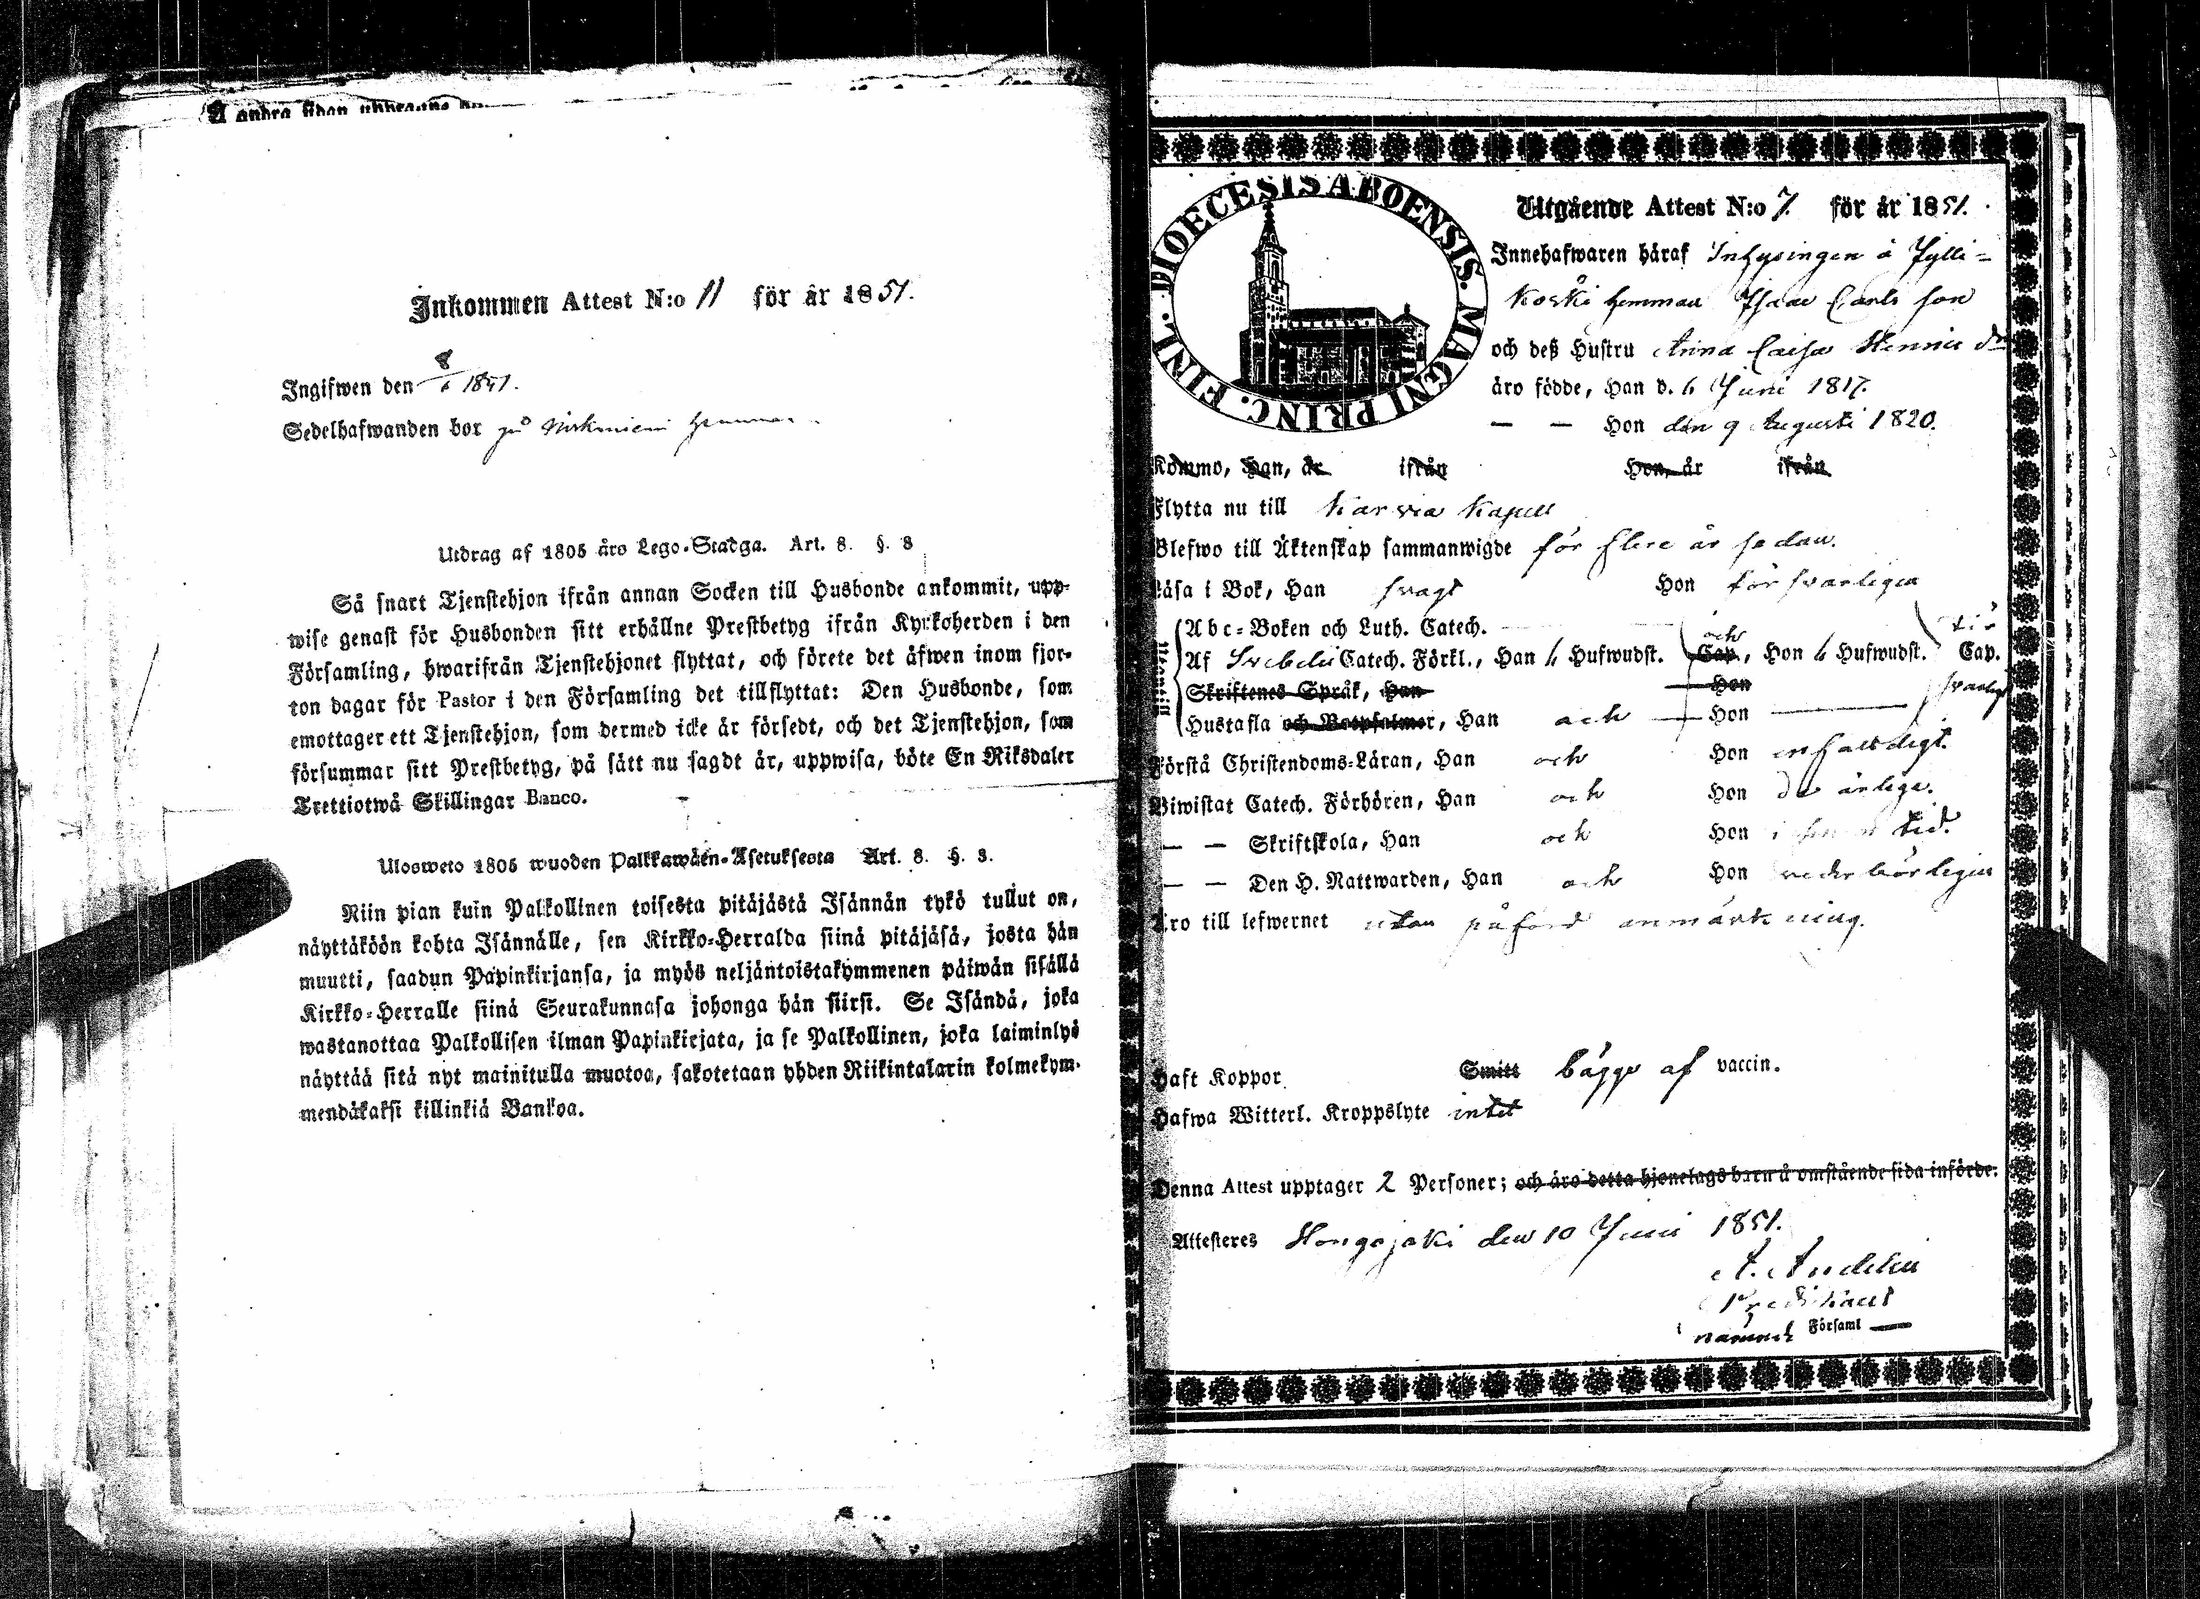 Å andra sidan uppräknas
Inkommen Attest N:o 11 för år 1851.
Ingifwen den 8/6 1851.
Sedelhafwanden bor på hemman
Utdrag af 1805 års Lego-Stadga. Art. 8. §. 3
Så snart Tjenstehjon ifrån annan Socken till Husbonde ankommit, upp-
wise genast för Husbonden sitt erhållne Prestbetyg ifrån Kyrkoherden i den
Församling, hwarifrån Tjenstehjonet flyttat, och förete det äfwen inom fjor-
ton dagar för Pastor i den Församling det tillflyttat: Den Husbonde, som
emottager ett Tjenstehjon, som dermed icke är försedt, och det Tjenstehjon, som
försummar sitt Prestbetyg, på sätt nu sagdt är, uppwisa, böte En Riksdaler
Trettiotwå Skillingar Banco.
Ulosweto 1805 wuoden Palkkawäen-Asetuksesta Art. 8. §. 3.
Niin pian kuin Palkollinen toisesta pitäjästä Isännän tykö tullut on,
näyttäköön kohta Isännälle, sen Kirkko-Herralda siinä pitäjäsä, josta hän
muutti, saadun Papinkirjansa, ja myös neljäntoistakymmenen päiwän sisällä
Kirkko-Herralle siinä Seurakunnasa johonga hän siirsi. Se Isändä, joka
wastanottaa Palkollisen ilman Papinkirjata, ja se Palkollinen, joka laiminlyö
näyttää sitä nyt mainitulla muotoa, sakotetaan yhden Riikintalarin kolmekym-
mendäkaksi killinkiä Bankoa.
DIOECESIS ABOENSIS. MAGNI PRINC. FINL.
Utgående Attest N:o 7. för år 1851.
Innehafwaren häraf Inhysingen å Jylli-
koski hemman Isaac Carls son
och deß Hustru Anna Caisa Henrics dr
äro födde, Han d. 6 Juni 1817.
— — Hon den 9 Augusti 1820.
Kommo, Han, år ifrån Hon, år ifrån
Flytta nu till Karvia Kapell
Blefwo till Äktenskap sammanwigde för flere år sedan.
Läsa i Bok, Han svagt Hon försvarligen
Abc-Boken och Luth. Catech.
Af Svebelii Catech. Förkl., Han 6 Hufwudst. och Cap., Hon 6 Hufwudst. Cap. för
Skriftenes Språk, Han Hon svarligt
Hustafla och Botpsalmer, Han och Hon
Förstå Christendoms-Läran, Han och Hon enfaldigt.
Biwistat Catech. Förhören, Han och Hon de årliga.
— — Skriftskola, Han och Hon i sin tid.
— — Den H. Nattwarden, Han och Hon vederbörligen
Äro till lefwernet utan påförd anmärkning.
Haft Koppor Smitt bägge af vaccin.
Hafwa Witterl. Kroppslyte intet
Denna Attest upptager 2 Personer; och äro detta hjonelags barn å omstående sida införde.
Attesteres Hongojoki den 10 Juni 1851.
A. Andelin
Predikant
i nämnde Församl